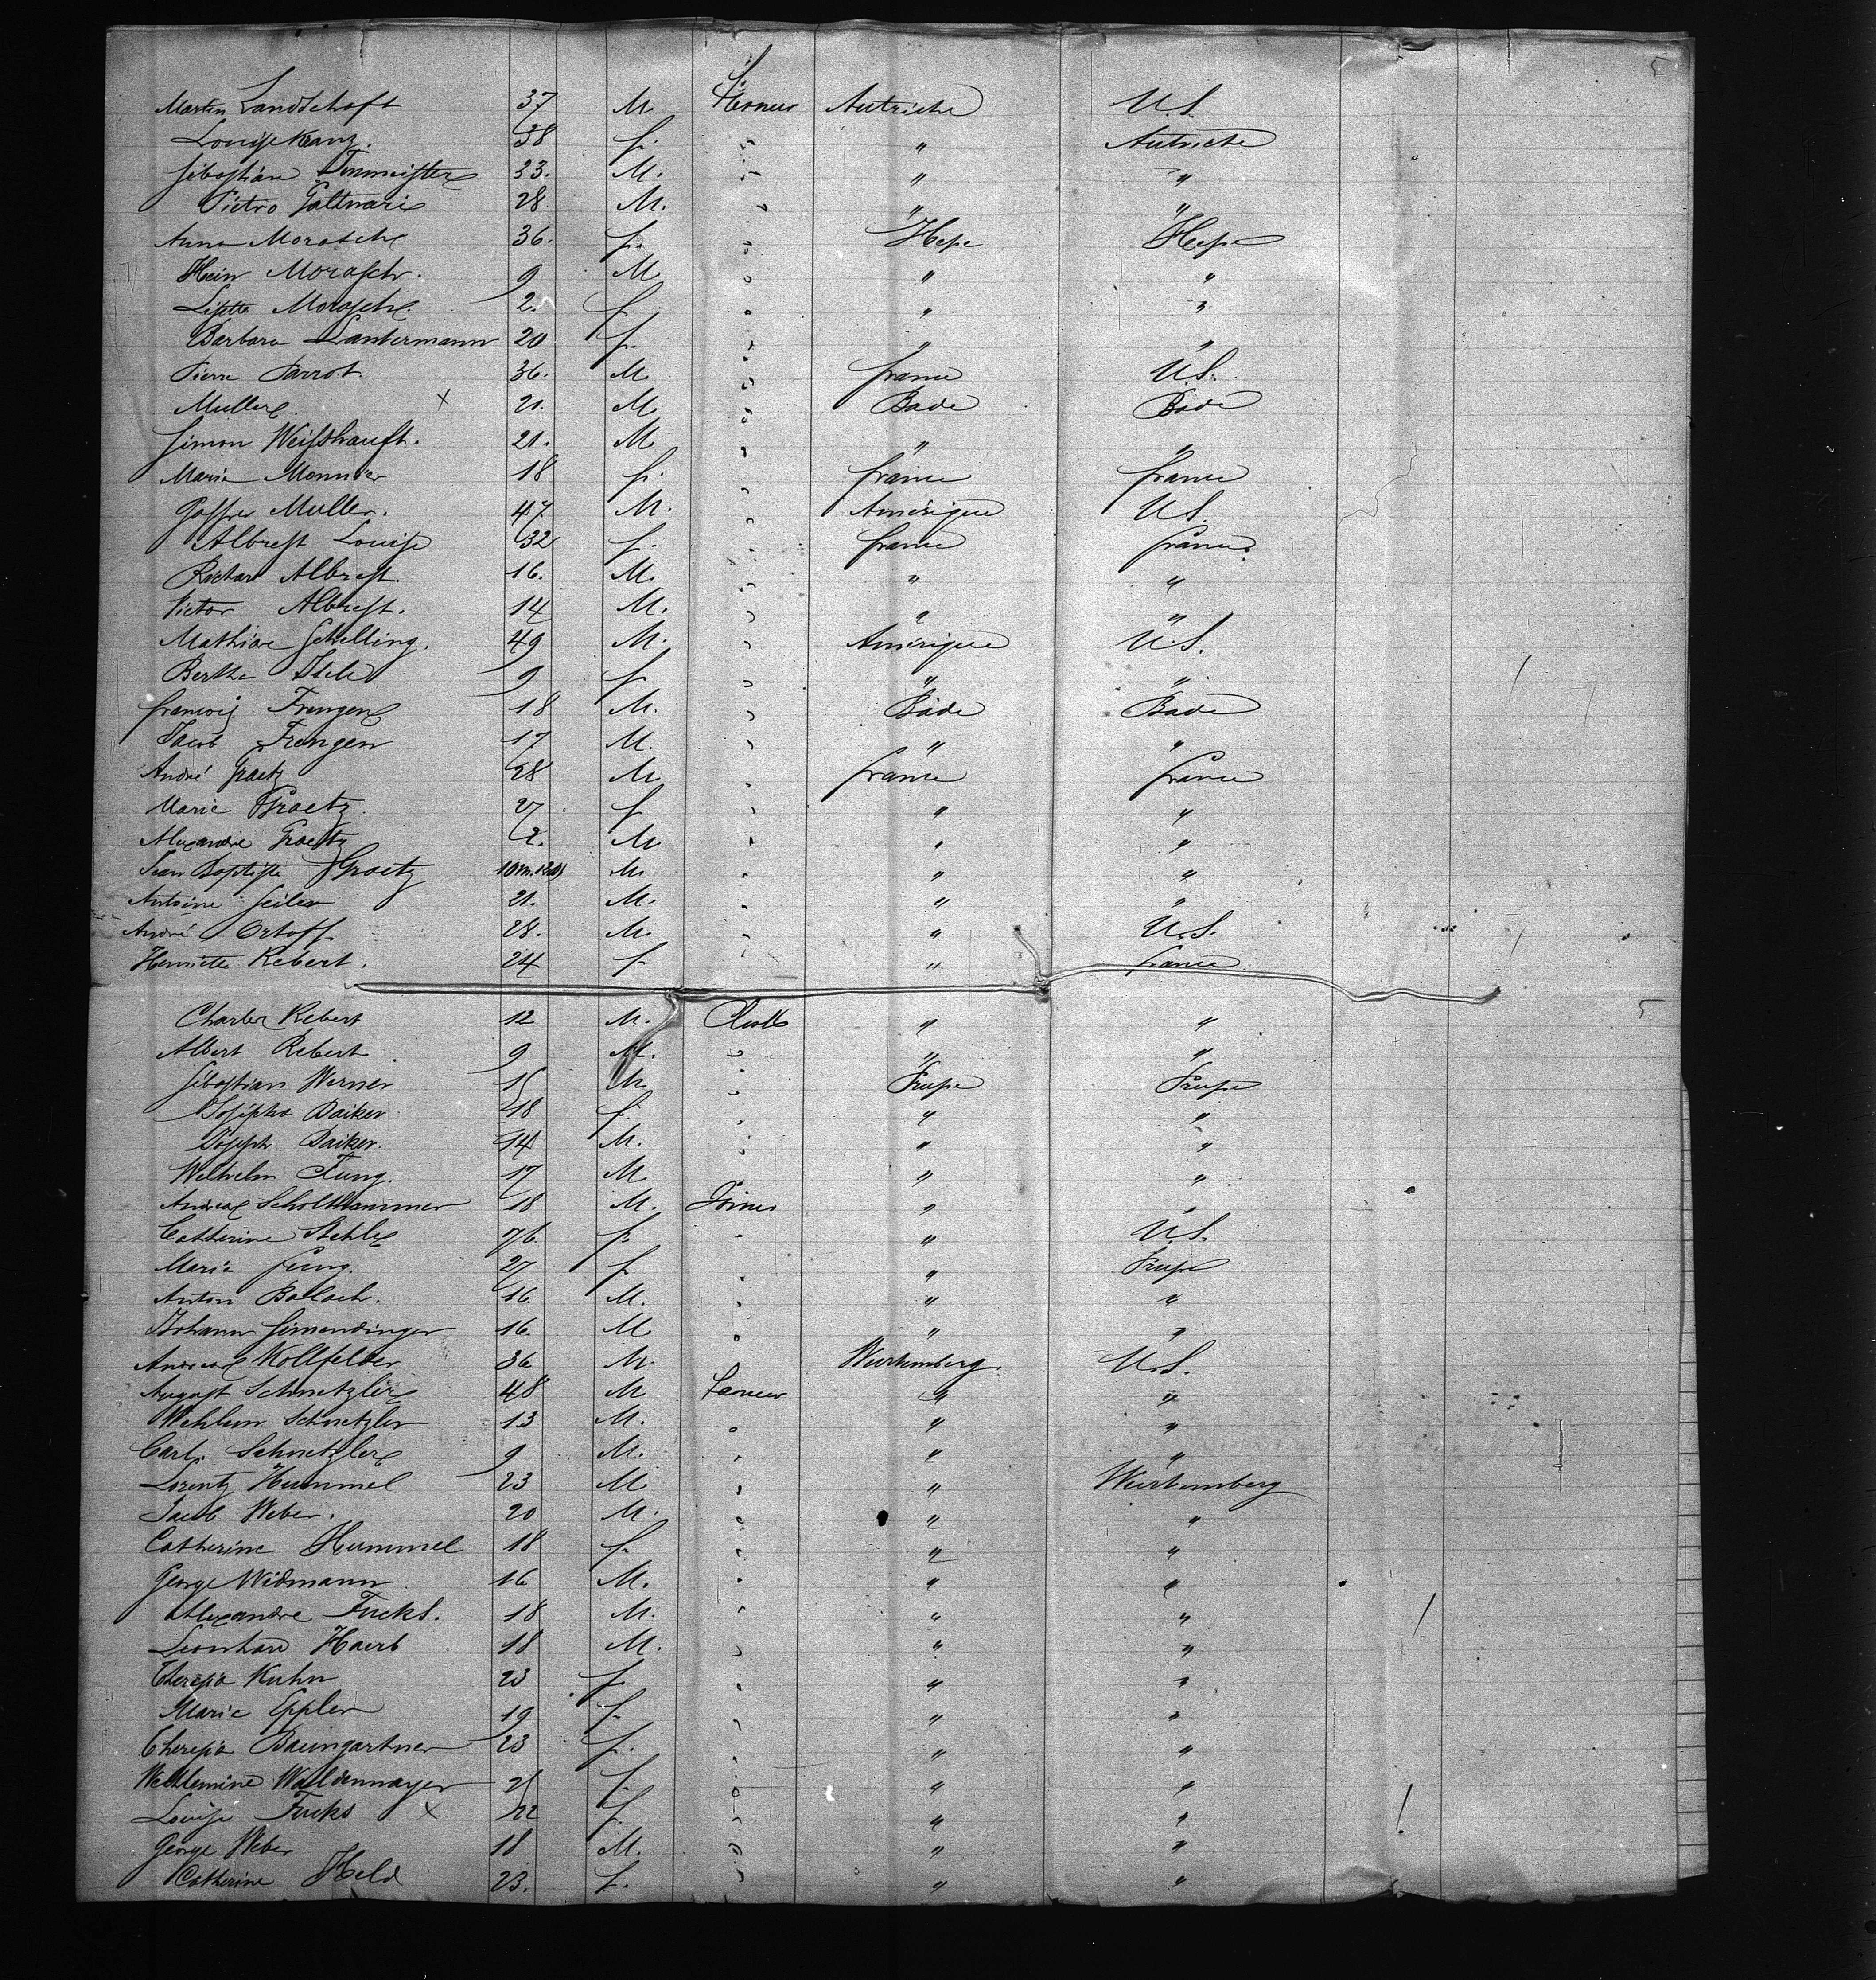 5
Martin Landschoft 37 M Autriche U.S.
Louise Kranz. 38 f. " " Autriche
Sébastian 33. M. " " "
Pietro 28. M. " " "
Anna Morasch 36. f. " Hesse Hesse
Hein Morasch. 9 M " " "
Lisette Morasch. 2. f " " "
Barbara Lantermann 20 f. " " "
Pierre Parrot. 36. M. " france U.S.
Muller X 21. M " Bade Bade
Simon Weisshaupt. 21. M " " "
Marie Monnier 18 f. " france france
Muller. 47 M. " Amérique U.S.
Albrest Louise 32 f. " france france
Richar Albrest. 16. M. " " "
Victor Albrest. 14 M. " " "
Mathias Schelling. 49 M. " Amérique U.S.
Bertha 9 f " " "
françois Frengen 18 M. " Bade Bade
Jacob Frengen 17 M. " " "
André Graetz 28 M " france france
Marie Graetz. 27 f " " "
Alexandre Graetz 2. M " " "
Jean Baptiste Graetz 10 m. M. " " "
Antoine Seiler 21. M. " " "
André Ortoff 28. M. " " U.S.
Henriette Rebert. 24 f " " france
5
Charles Rebert 12 M. " "
Albert Rebert 9 M. " " "
Sébastian Werner 15 M " Prusse Prusse
Josepha Baiker 18 f. " " "
Joseph Baiker. 14 M. " " "
Wilhelm Jung. 17 M " " "
Andreas Scholthammer 18 M. " "
Catherine Stehle 76 f " " U.S.
Marie Jung. 27 f " " Prusse
Anton Bollach. 16. M. " " "
Johann Simendinger 16. M " " "
Andreas Kollfelder 36 M. " Wurtemberg. U.S.
August Schnetzler 48 M " "
Wehlem Schnetzler 13 M. " " "
Carl. Schnetzler 9 M. " " "
Lorentz Hummel 23 M " " Wurtemberg
Jacob Weber. 20 M. " " "
Catherine Hummel 18 f. " " "
George Widmann 16 M. " " "
Alexandre Fucks. 18 M. " " "
Leonhard Haerb 18 M. " " "
Theresia Kuhn 23 f " " "
Marie Eppler 19 f. " " "
Theresia Baumgartner 23 f. " " "
Wehlemine Waldenmayer 21 f. " " "
Louise Fucks X 22 f. " " "
George Weber 18 M. " " "
Catherine Held 23. f. " " "